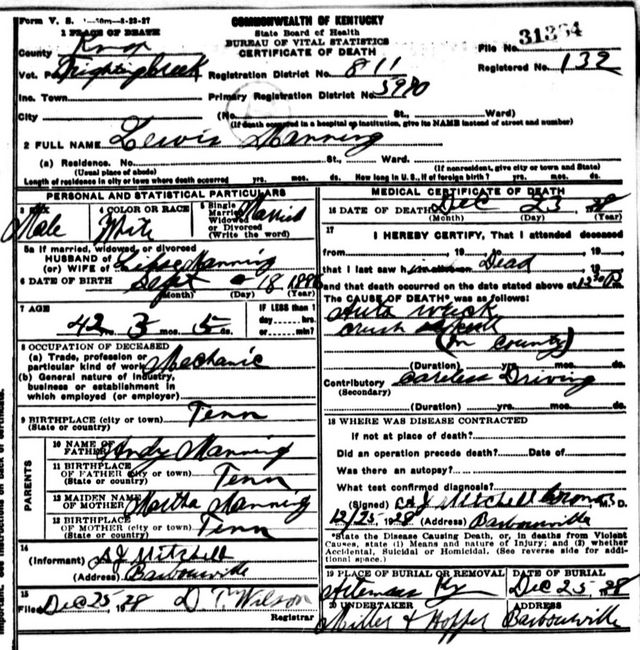 Form V. S. 1—50m—8-23-27
COMMONWEALTH OF KENTUCKY
State Board of Health
BUREAU OF VITAL STATISTICS
CERTIFICATE OF DEATH
1 PLACE OF DEATH
County Knox
File No. 31334
Vot. Registration District No. 811
Registered No. 132
Inc. Town Primary Registration District No. 5980
City (No. St., Ward)
(If death occurred in a hospital or institution, give its NAME instead of street and number)
2 FULL NAME Lewis Manning
(a) Residence. No. St., Ward.
(Usual place of abode) (If nonresident, give city or town and State)
Length of residence in city or town where death occurred yrs. mos. ds. How long in U. S., if of foreign birth? yrs. mos. ds.
PERSONAL AND STATISTICAL PARTICULARS
3 SEX 4 COLOR OR RACE 5 Single Married Widowed or Divorced (Write the word)
Male White Married
5a If married, widowed, or divorced
HUSBAND OF
(or) WIFE of Manning
6 DATE OF BIRTH Sept 18 1886
(Month) (Day) (Year)
7 AGE IF LESS than 1
day hrs.
or min?
42 yrs. 3 mos. 5 ds.
8 OCCUPATION OF DECEASED
(a) Trade, profession or
particular kind of work Mechanic
(b) General nature of industry,
business or establishment in
which employed (or employer)
9 BIRTHPLACE (city or town) Tenn
(State or country)
PARENTS
10 NAME OF
FATHER Andy Manning
11 BIRTHPLACE
OF FATHER (city or town) Tenn
(State or country)
12 MAIDEN NAME
OF MOTHER Martha Manning
13 BIRTHPLACE
OF MOTHER (city or town) Tenn
(State or country)
14
(Informant) A J Mitchell
(Address) Barbourville
15
Filed Dec 25 1928 D. T. Wilson
Registrar
MEDICAL CERTIFICATE OF DEATH
16 DATE OF DEATH Dec 23 1928
(Month) (Day) (Year)
17
I HEREBY CERTIFY, That I attended deceased
from 19 to 19
that I last saw h alive on Dead 19
and that death occurred on the date stated above at
The CAUSE OF DEATH* was as follows:
Auto Wreck
Crush
(In County)
(Duration) yrs. mos. ds.
Contributory Careless Driving
(Secondary)
(Duration) yrs. mos. ds.
18 WHERE WAS DISEASE CONTRACTED
If not at place of death?
Did an operation precede death? Date of
Was there an autopsy?
What test confirmed diagnosis?
(Signed) A J Mitchell Coroner M. D.
12/25 1928 (Address) Barbourville
*State the Disease Causing Death, or, in deaths from Violent
Causes, state (1) Means and nature of Injury; and (2) whether
Accidental, Suicidal or Homicidal. (See reverse side for addi-
tional space.)
19 PLACE OF BURIAL OR REMOVAL DATE OF BURIAL
Ky Dec 25 28
20 UNDERTAKER ADDRESS
Miller & Hopper Barbourville